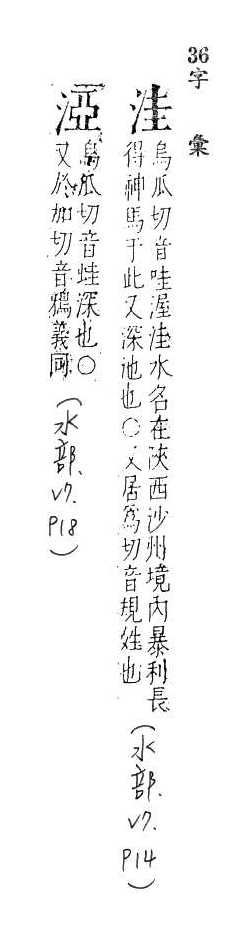 36字彙
洼
烏瓜切音哇渥洼水名在陜西沙州境內暴利長
得神馬于此又深池也○又居為切音規姓也
(水部.V7.P14)
浧
烏瓜切音蛙深也○
又於加切音鴉義同
(水部.V7.P18)